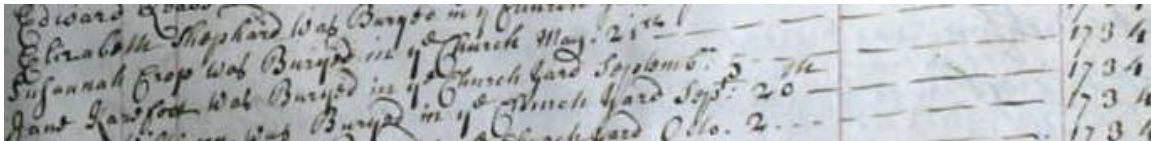 Edward
Elizabeth Shephard was Buryed in ye Church May: 21th 1734
Susannah Crop was Buryed in ye Church Yard Septemb:r 3 1734
Jane was Buryed in ye Church Yard Sep:r 20th 1734
was Buryed in ye Church Yard Octo. 2 1734